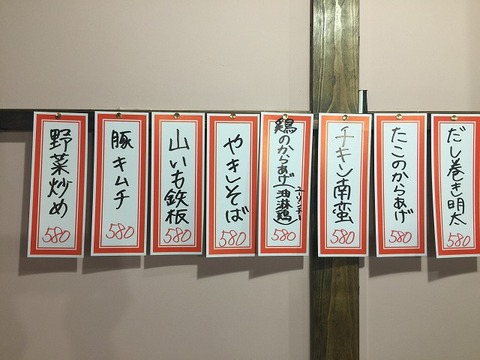 だし巻き明太
580
たこのからあげ
580
チキン南蛮
580
鶏のからあげ(油淋鶏)
ユーリンチー
580
やきしそば
580
山いも鉄板
580
豚キムチ
580
野菜炒め
580